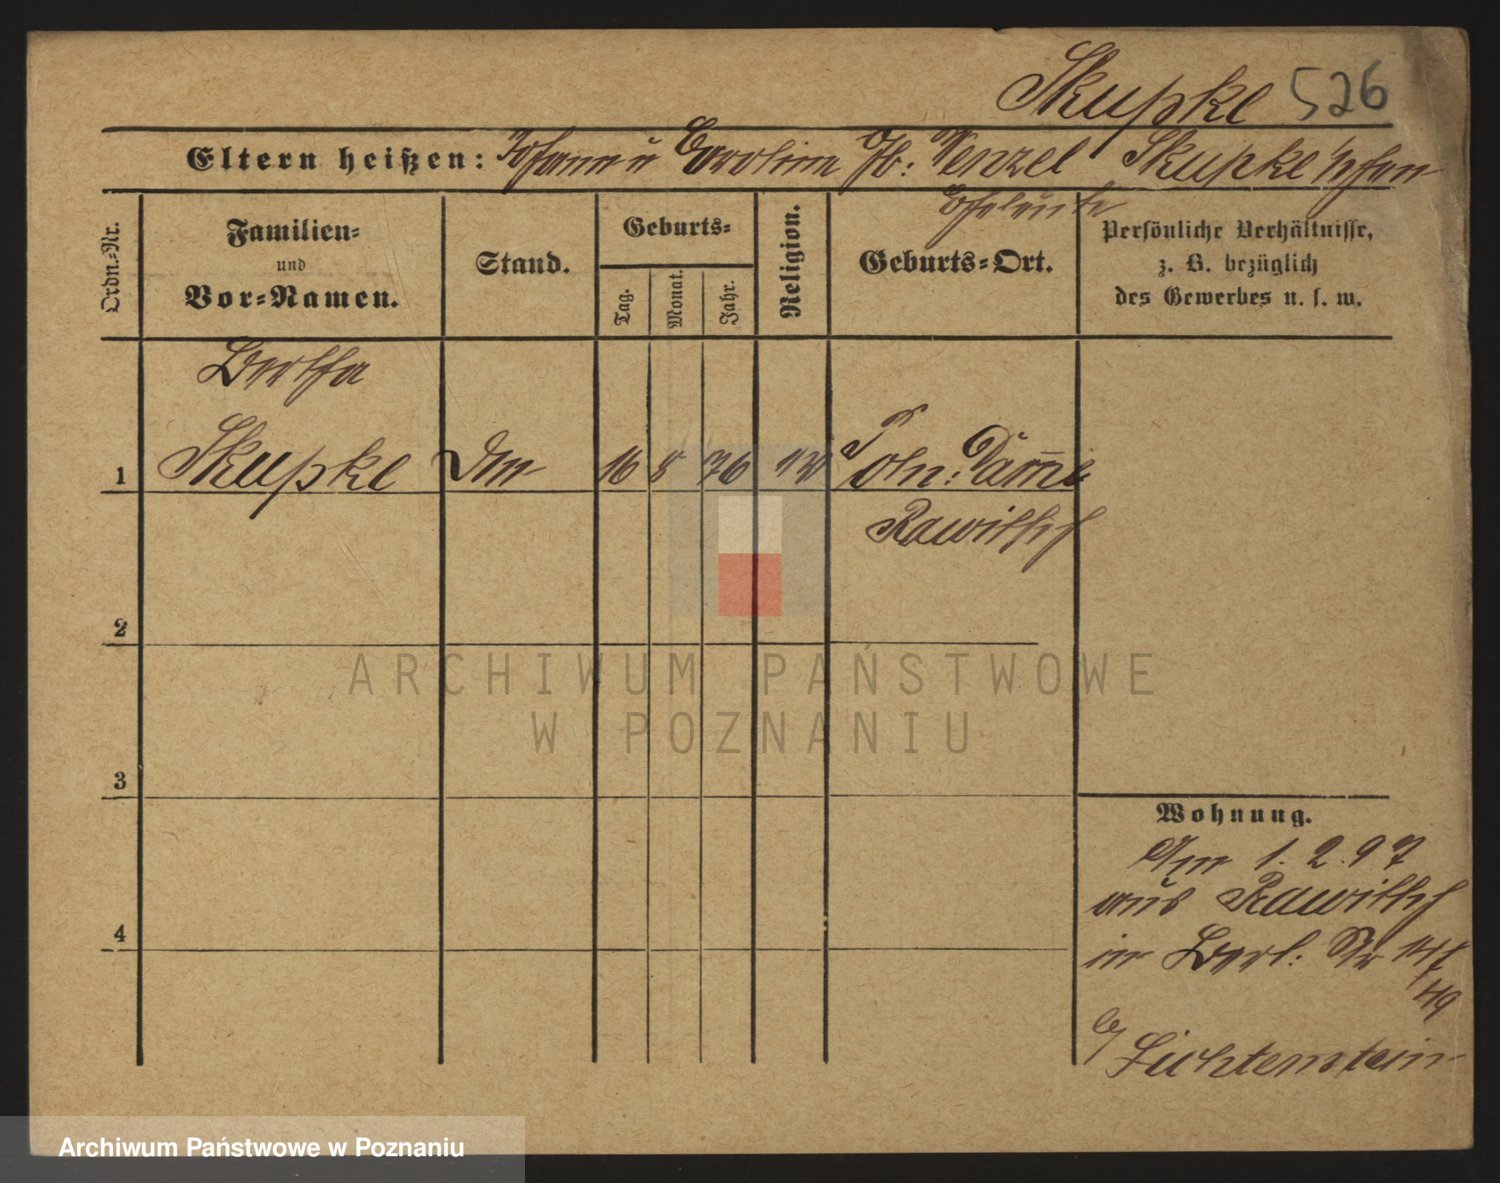 Skupke 526
Eltern heißen: Johann u Caroline gb: Wenzel Skupke'schen
Eheleute
Ordn.-Nr.
Familien-
und
Vor-Namen.
Stand.
Geburts-
Tag.
Monat.
Jahr.
Religion.
Geburts-Ort.
Persönliche Verhältnisse,
z. B. bezüglich
des Gewerbes u. s. w.
Bertha
1 Skupke 16 8 76 Poln: Damme
Rawitsch
2
3
4
Wohnung.
Am 1.2.97
aus Rawitsch
in Berl: Str
49
Lichtenstein
ARCHIWUM PAŃSTWOWE
W POZNANIU
Archiwum Państwowe w Poznaniu